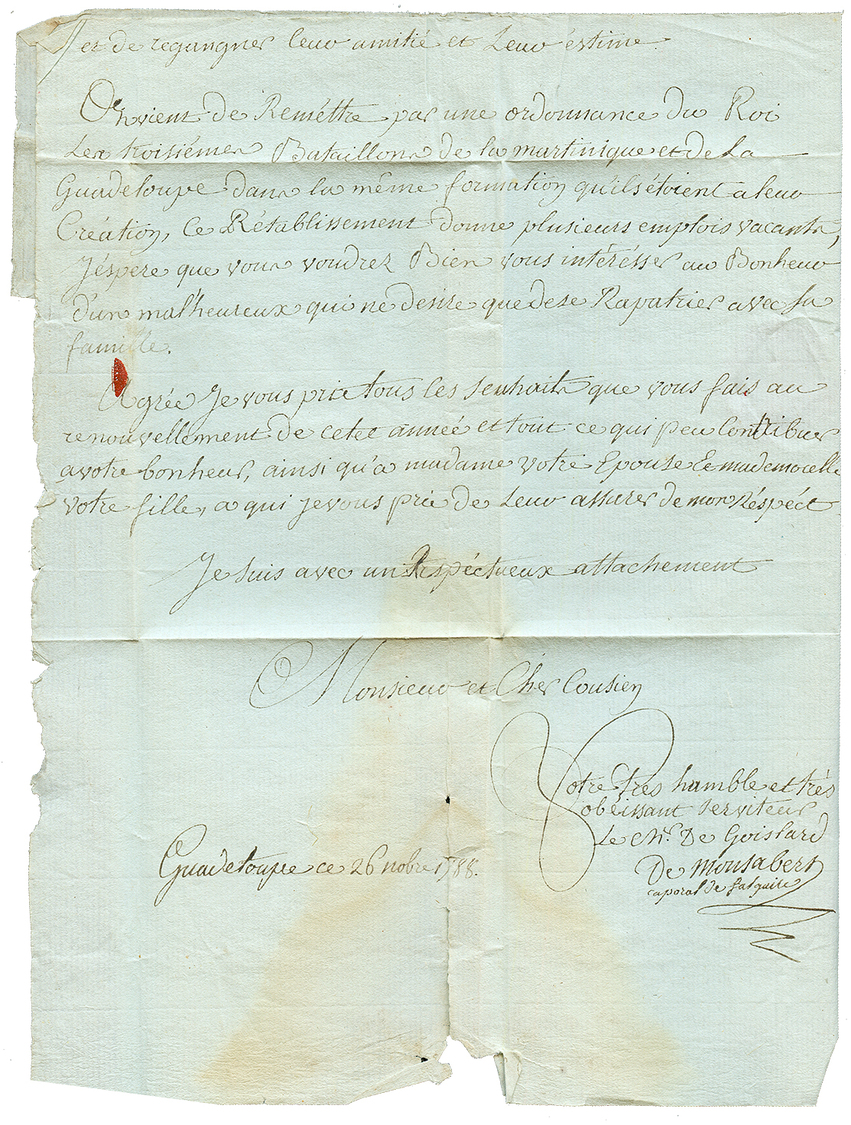 et de regangner leur amitié et Leur estime.
On vient de Reméttre par une ordonnance du Roi
Les troisiémes Bataillons de la martinique et de La
Guadeloupe dans la même formation qu'ils étoient a leur
Création, Ce Rétablissement donne plusieurs emplois vacants,
J'éspere que vous voudrez Bien vous intérésser au Bonheur
d'un mal'heureux qui ne desire que de se Rapatrier avec sa
famille.
Agrée Je vous prie tous les souhaits que vous fais au
renouvellement de cetee année et tout ce qui peu Contribuer
a votre bonheur, ainsi qu'a madame votre Epouse Et mademocelle
votre fille, a qui je vous prie de Leur assurer de mon Réspéct
Je suis avec un Réspéctueux attachement
Monsieur et Cher Cousien
Votre trés hamble et trés
obéissant serviteur
Le Chr. De Goislard
De Monsabert
caporal de
Guadeloupe ce 26 nobre 1788.